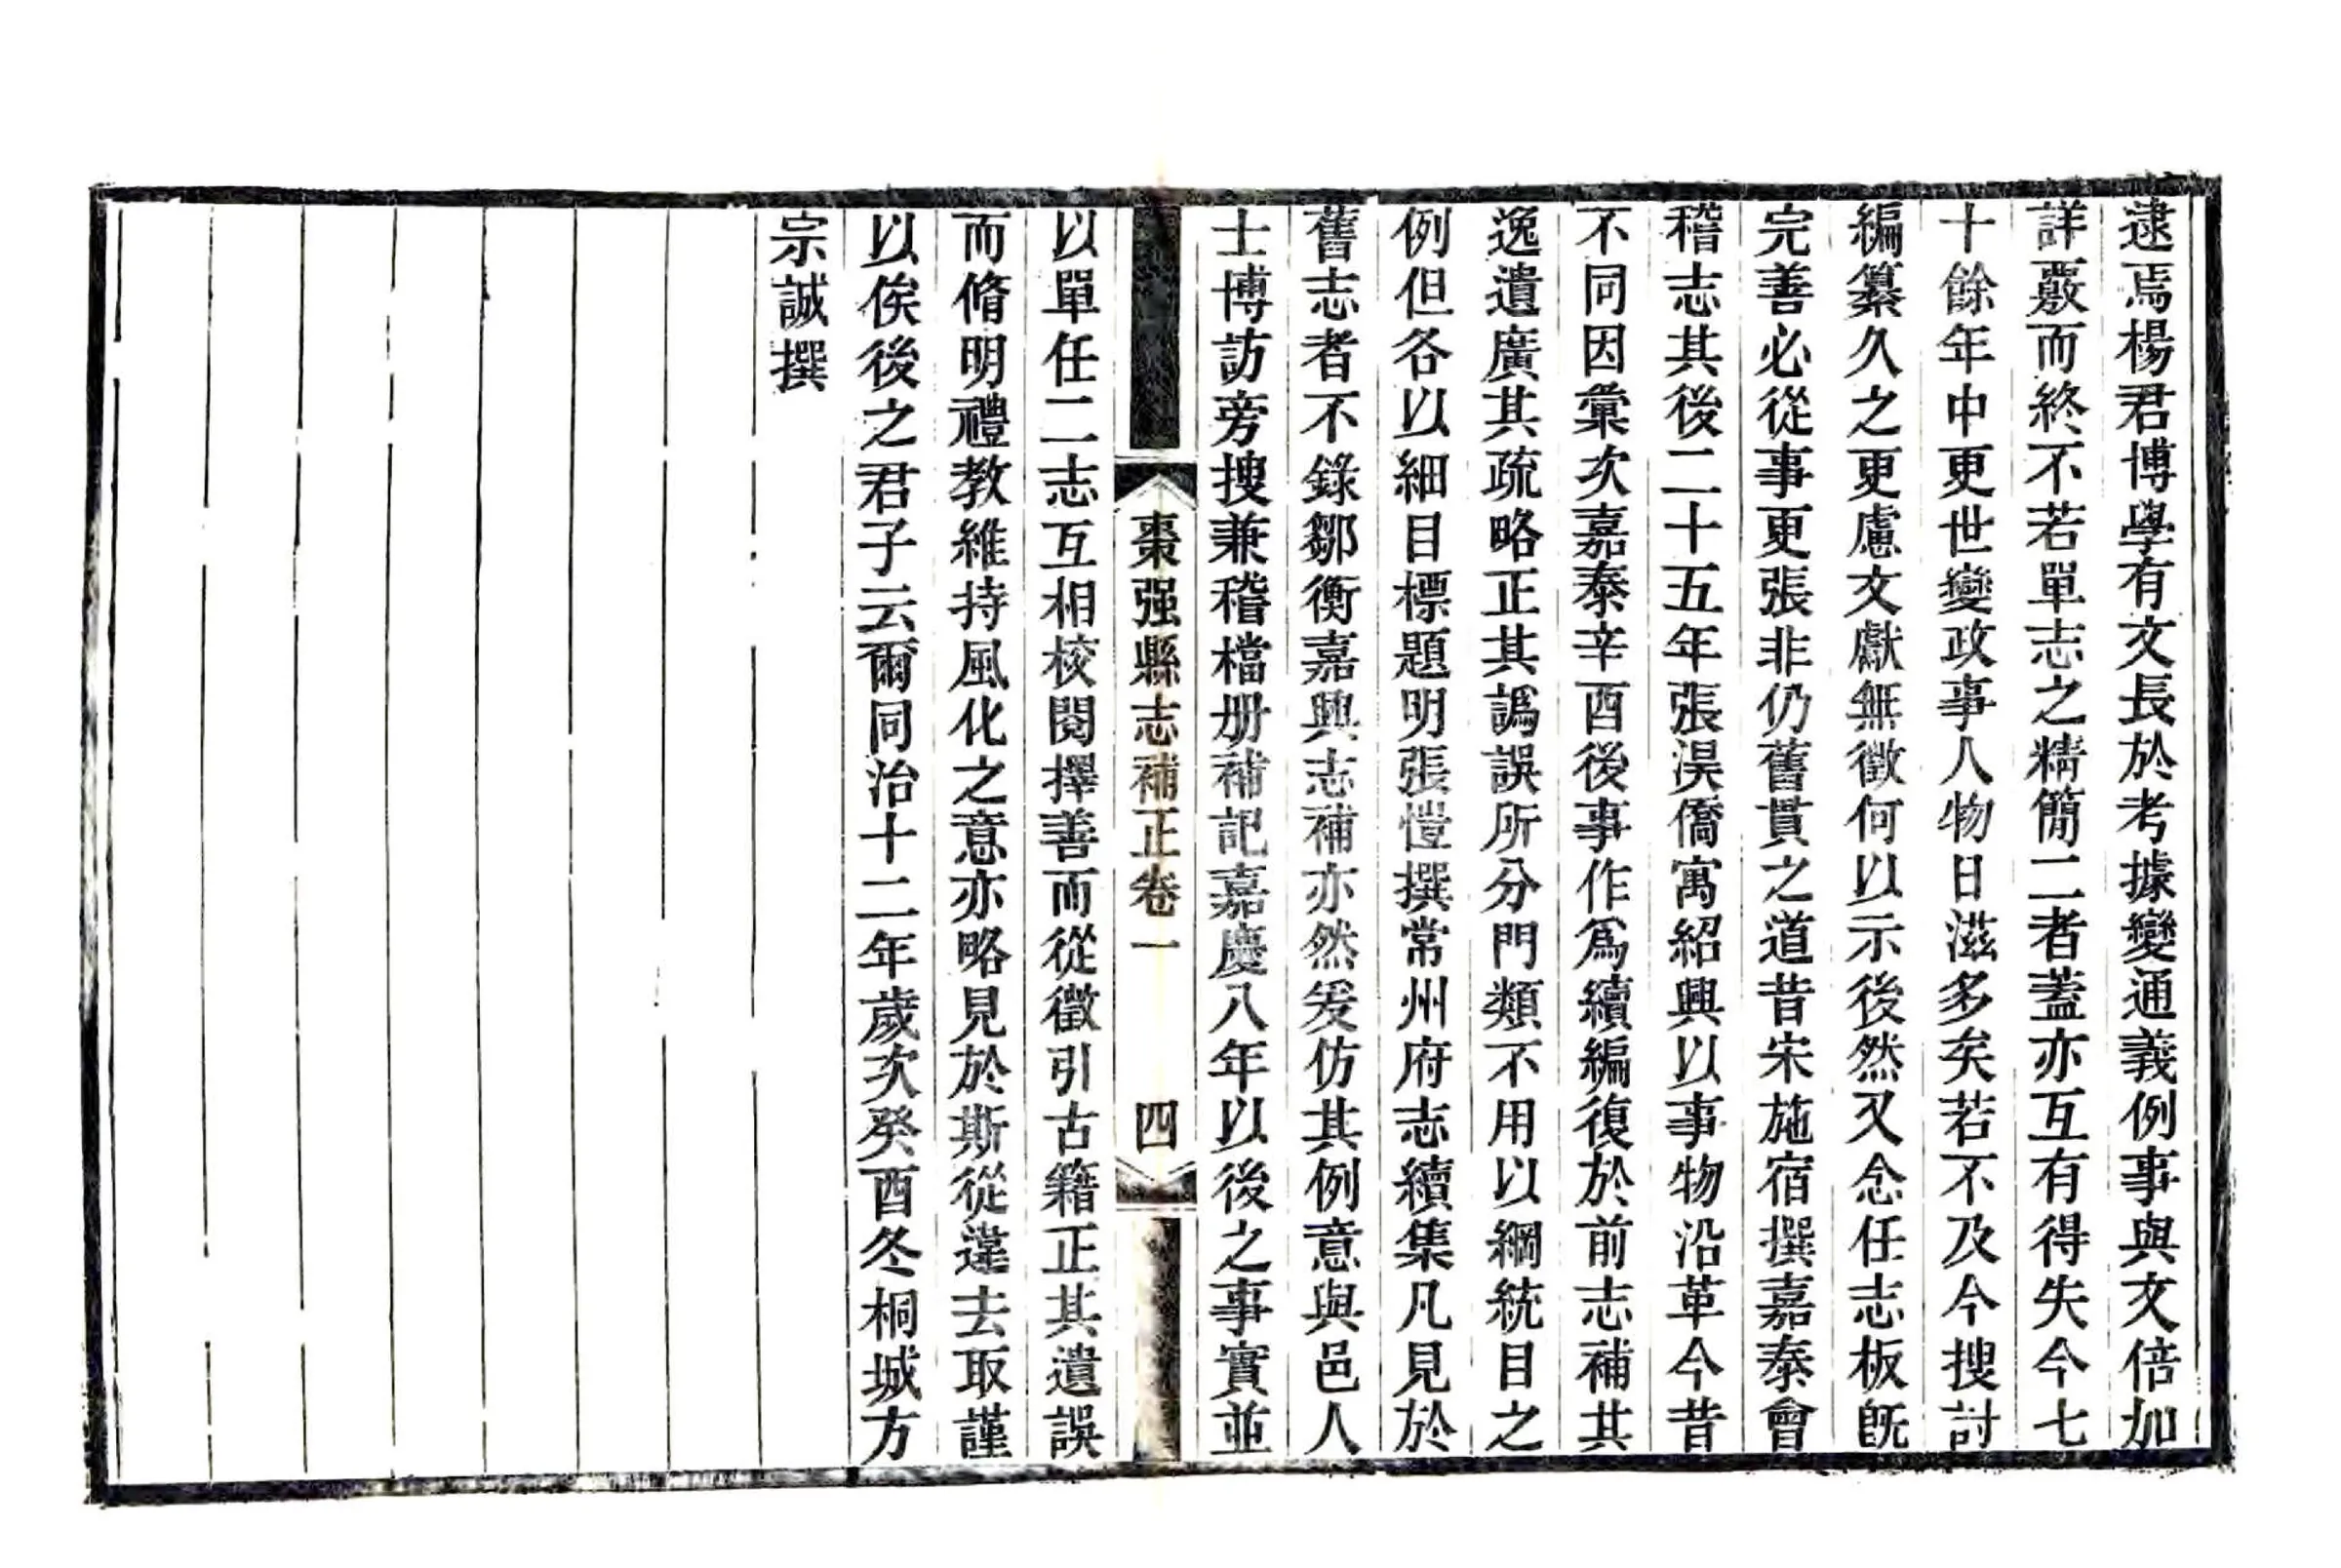 逮焉楊君博學有文長於考據變通義例事與文倍加
詳覈而終不若單志之精簡二者蓋亦互有得失今七
十餘年中更世變政事人物日滋多矣若不及今搜討
編纂久之更慮文獻無徵何以示後然又念任志板旣
完善必從事更張非仍舊貫之道昔宋施宿撰嘉泰會
稽志其後二十五年張淏僑寓紹興以事物沿革今昔
不同因彙次嘉泰辛酉後事作爲續編復於前志補其
逸遺廣其疏略正其譌誤所分門類不用以綱統目之
例但各以細目標題明張愷撰常州府志續集凡見於
舊志者不錄鄒衡嘉興志補亦然爰仿其例意與邑人
士博訪旁搜兼稽檔册補記嘉慶八年以後之事實並
棗强縣志補正卷一 四
以單任二志互相校閱擇善而從徵引古籍正其遺誤
而脩明禮教維持風化之意亦略見於斯從違去取謹
以俟後之君子云爾同治十二年歲次癸酉冬桐城方
宗誠撰